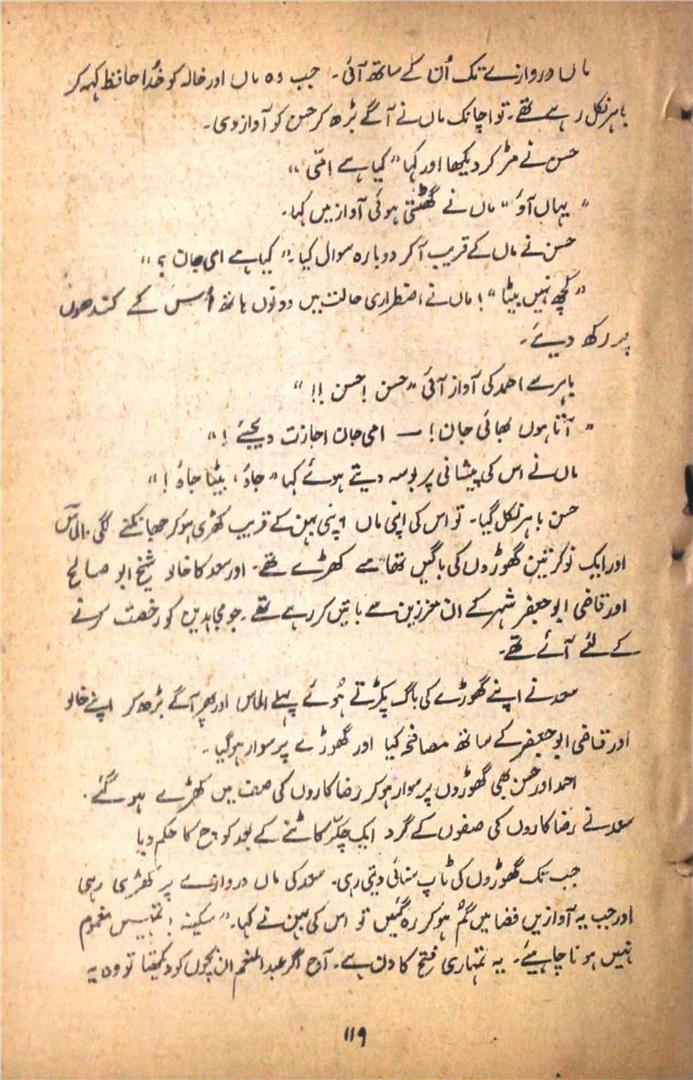 ماں دروازے تک اُن کے ساتھ آئی۔ جب وہ ماں اور خالہ کو خُدا حافظ کہہ کر
باہر نکل رہے تھے۔ تو اچانک ماں نے آگے بڑھ کر حسن کو آواز دی۔
حسن نے مڑ کر دیکھا اور کہا "کیا ہے امّی"
"یہاں آؤ" ماں نے گھُٹتی ہوئی آواز میں کہا۔
حسن نے ماں کے قریب آ کر دوبارہ سوال کیا۔ "کیا ہے امی جان؟"
"کچھ نہیں بیٹا"! ماں نے اضطراری حالت میں دونوں ہاتھ اُس کے کندھوں
پر رکھ دیئے۔
باہر سے احمد کی آواز آئی "حسن! حسن!!"
"آتا ہوں بھائی جان! — امی جان اجازت دیجئے!"
ماں نے اس کی پیشانی پر بوسہ دیتے ہوئے کہا "جاؤ، بیٹا جاؤ!"
حسن باہر نکل گیا۔ تو اس کی اپنی ماں اپنی بہن کے قریب کھڑی ہو کر جھانکنے لگی۔ الماس
اور ایک نوکر تین گھوڑوں کی باگیں تھامے کھڑے تھے۔ اور سعد کا خالو شیخ ابو صالح
اور قاضی ابو جعفر شہر کے ان معززین سے باتیں کر رہے تھے۔ جو مجاہدین کو رخصت کرنے
کے لئے آئے تھے۔
سعد نے اپنے گھوڑے کی باگ پکڑتے ہُوئے پہلے الماس اور پھر آگے بڑھ کر اپنے خالو
اور قاضی ابو جعفر کے ساتھ مصافحہ کیا اور گھوڑے پر سوار ہو گیا۔
احمد اور حسن بھی گھوڑوں پر سوار ہو کر رضا کاروں کی صف میں کھڑے ہو گئے۔
سعد نے رضا کاروں کی صفوں کے گرد ایک چکّر کاٹنے کے بعد کوچ کا حکم دیا
جب تک گھوڑوں کی ٹاپ سنائی دیتی رہی۔ سعد کی ماں دروازے پر کھڑی رہی
اور جب یہ آوازیں فضا میں گُم ہو کر رہ گئیں تو اس کی بہن نے کہا۔ "سکینہ! تمہیں مغموم
نہیں ہونا چاہیئے۔ یہ تمہاری فتح کا دن ہے۔ آج اگر عبدالمنعم ان بچوں کو دیکھتا تو وہ یہ
۱۱۹